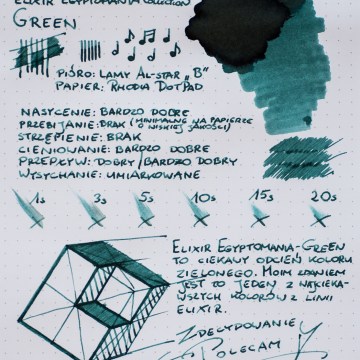 ELIXIR EGYPTOMANIA COLLECTION
GREEN
PIÓRO: LAMY AL-STAR „B"
PAPIER: RHODIA DOTPAD
NASYCENIE: BARDZO DOBRE
PRZEBIJANIE: BRAK (MINIMALNE NA PAPIERZE O NISKIEJ JAKOŚCI)
STRZĘPIENIE: BRAK
CIENIOWANIE: BARDZO DOBRE
PRZEPŁYW: DOBRY/BARDZO DOBRY
WYSYCHANIE: UMIARKOWANE
1s 3s 5s 10s 15s 20s
ELIXIR EGYPTOMANIA-GREEN
TO CIEKAWY ODCIEŃ KOLORU
ZIELONEGO. MOIM ZDANIEM
JEST TO JEDEN Z NAJCIEKA-
WSZYCH KOLORÓW Z LINII
ELIXIR.
ZDECYDOWANIE
POLECAM